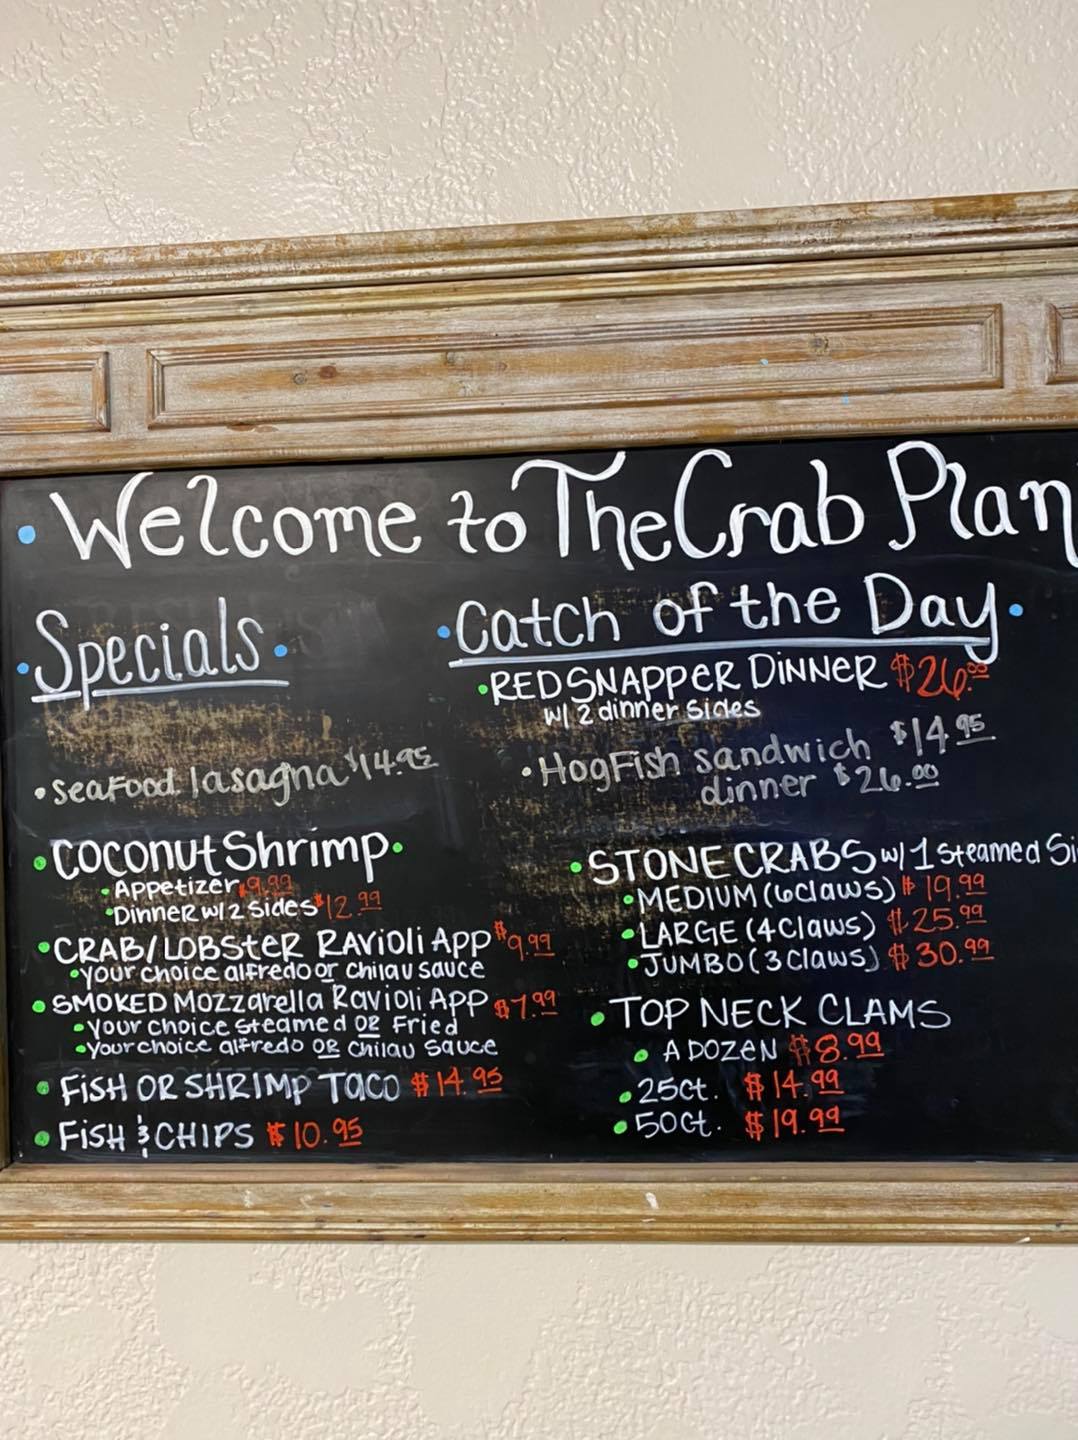 Welcome to The Crab Plan
Specials
seafood lasagna $14.95
Coconut Shrimp
Appetizer $9.99
Dinner w/ 2 sides $12.99
CRAB/LOBSTER RAVioli App $9.99
your choice alfredo or chilau sauce
SMOKED Mozzarella Ravioli App $7.99
your choice steamed OR Fried
your choice alfredo OR chilau sauce
FISH OR SHRIMP TACO $14.95
FiSH & CHIPS $10.95
Catch of the Day
RED SNAPPER DINNER $26.00
w/ 2 dinner sides
HogFish sandwich $14.95
dinner $26.00
STONE CRABS w/ 1 steamed Si
MEDIUM (6 claws) $19.99
LARGE (4 claws) $25.99
JUMBO (3 claws) $30.99
TOP NECK CLAMS
A DOZEN $8.99
25ct. $14.99
50ct. $19.99